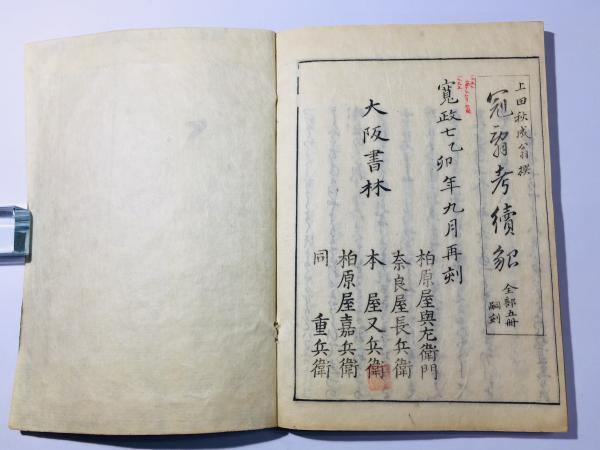 上田秋成翁撰
冠翁考續貂
全部五冊
嗣刻
寛政七乙卯年九月再刻
大阪書林
柏原屋與左衛門
奈良屋長兵衛
本屋又兵衛
柏原屋嘉兵衛
同 重兵衛